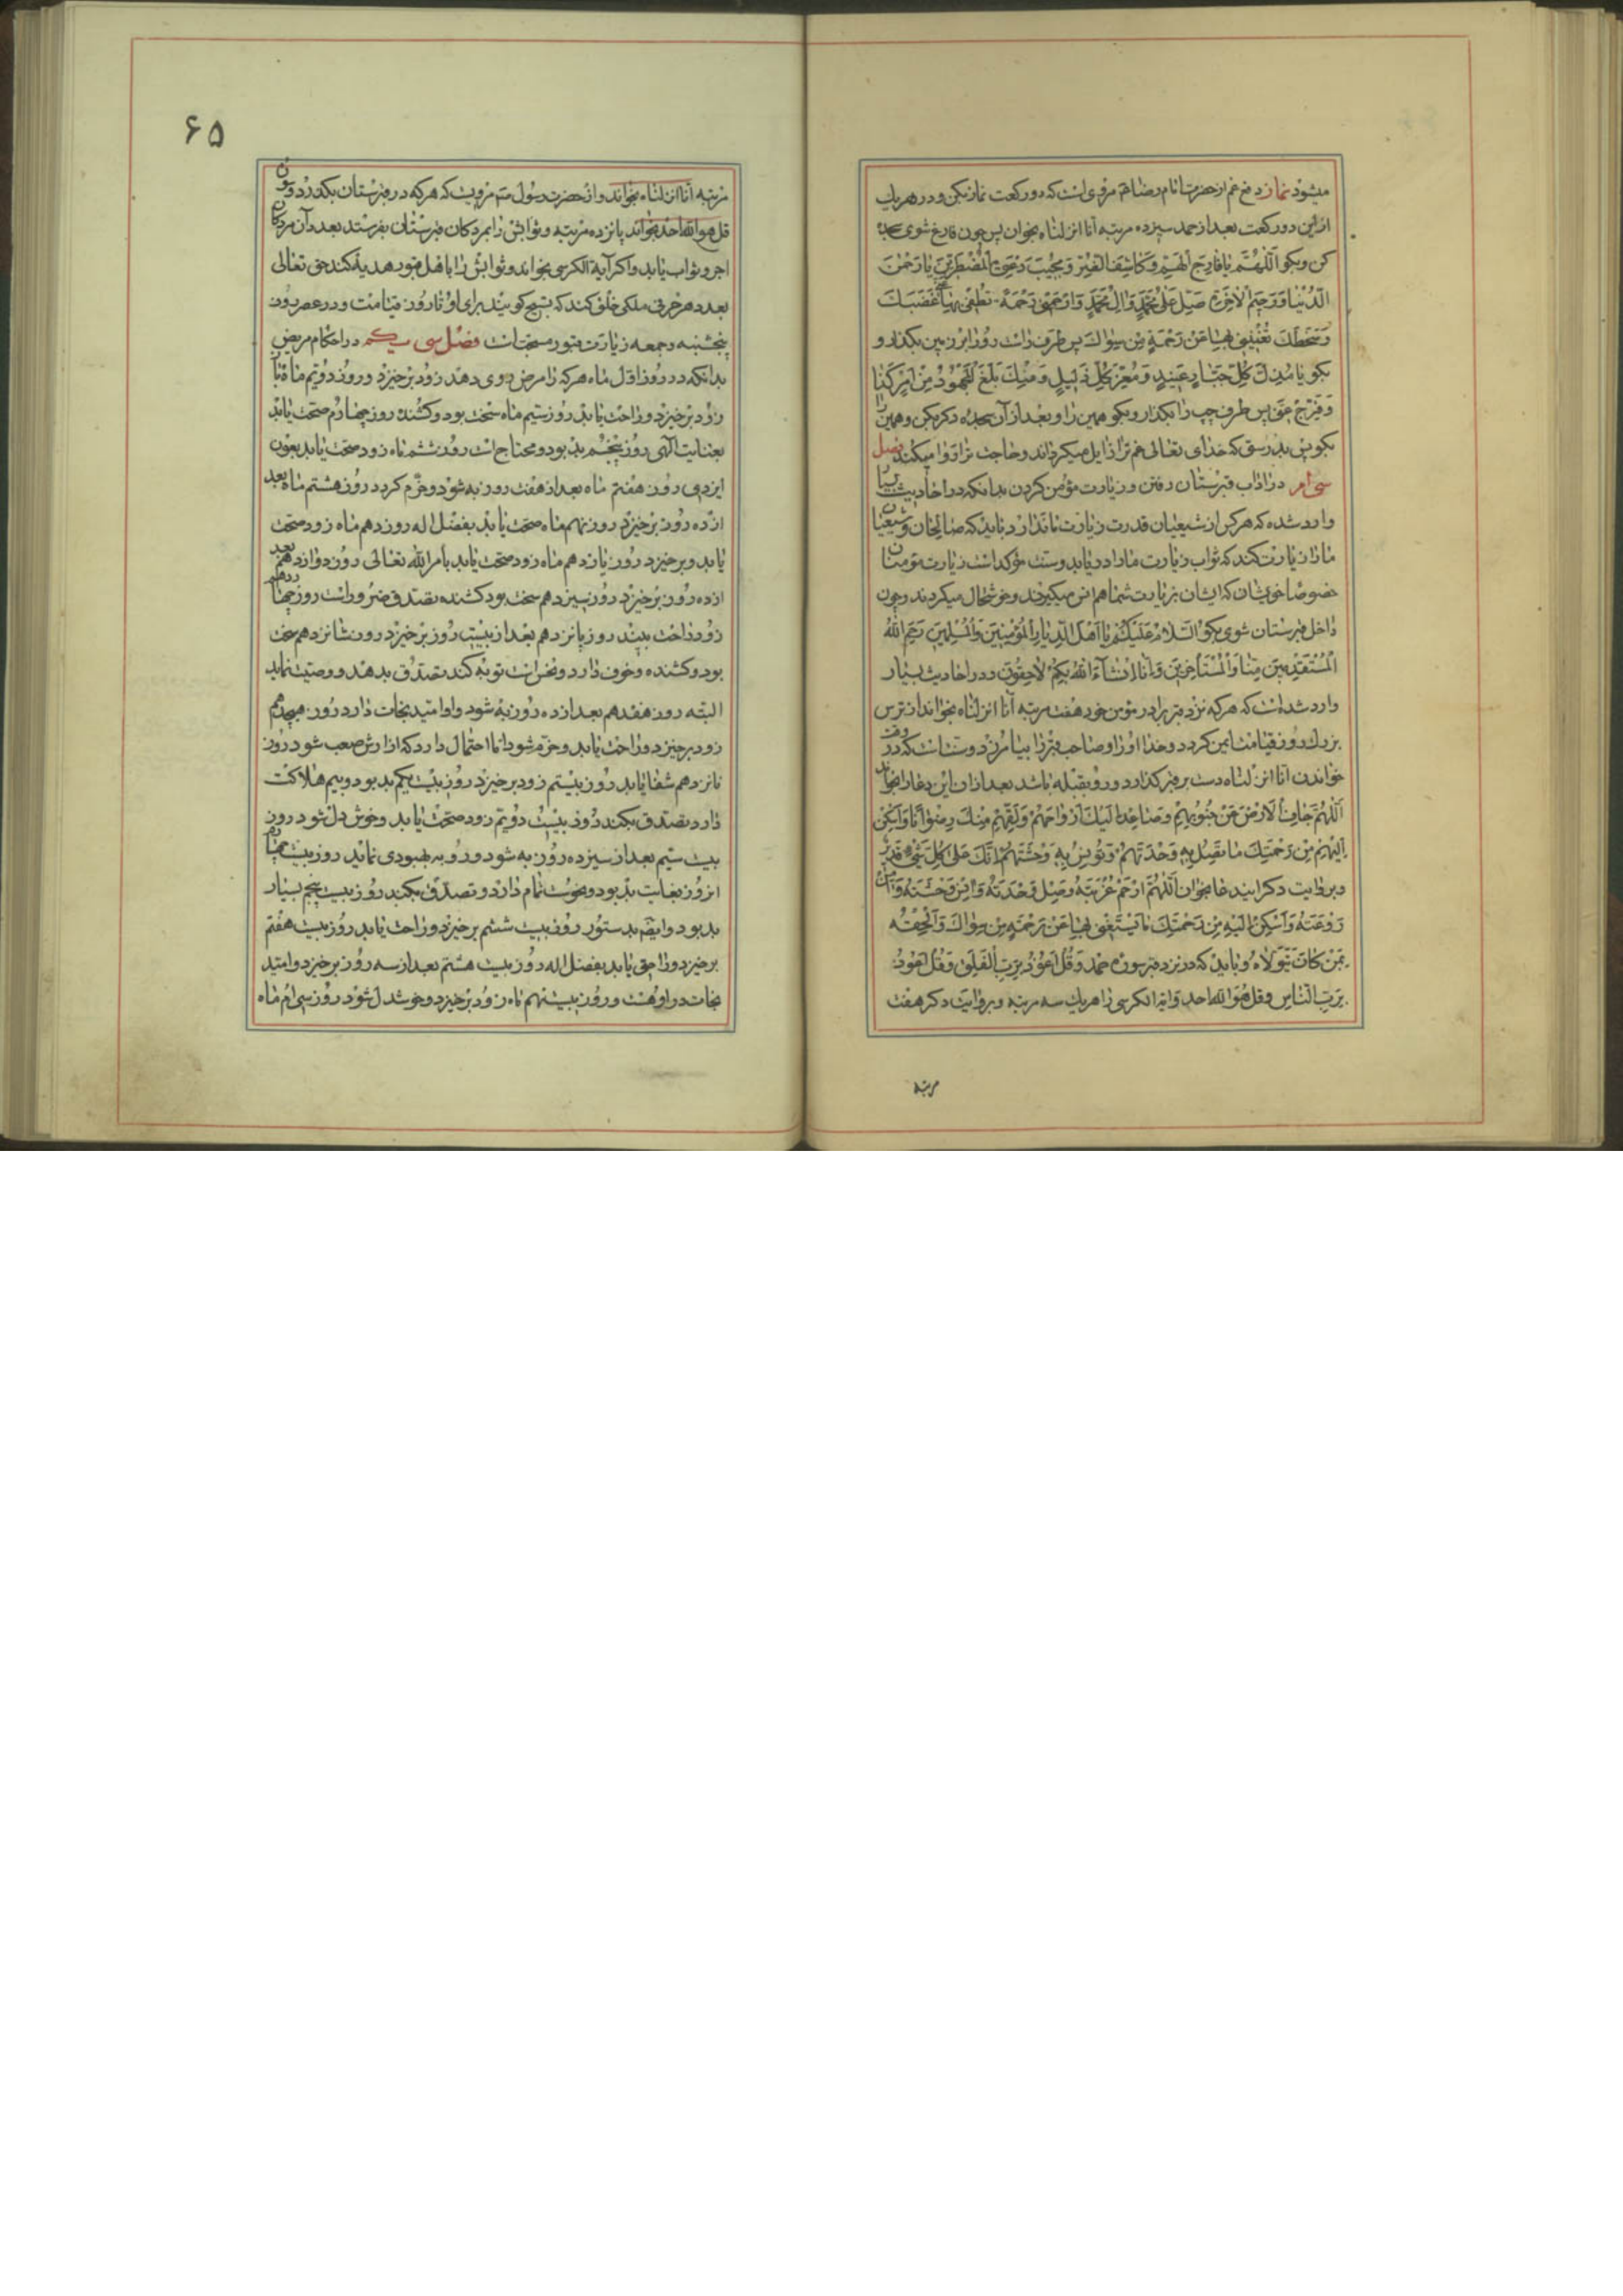 میشود نماز دفع غم از حضرت امام رضا مروی است که دو رکعت نماز بکن و در هر یك
از این دو رکعت بعد از حمد سیزده مرتبه انا انزلناه بخوان پس چون فارغ شوی سجده
کن و بکو اَللّهُمَّ یا فارِجَ الْهَمِّ وَ کاشِفَ الْغَمِّ وَ مُجیبَ دَعْوَةِ الْمُضْطَرّینَ یا رَحْمنَ
الدُّنْیا وَ رَحیمَ الْاخِرَةِ صَلِّ عَلی مُحَمَّدٍ وَ الِ مُحَمَّدٍ وَ ارْحَمْنی رَحْمَةً تُطْفِیُ بِها غَضَبَكَ
وَ سَخَطَكَ تُغْنینی بِها عَنْ رَحْمَةِ مَنْ سِواكَ پس طرف راست رو را بر زمین بکذار و
بکو یا مُذِلَّ کُلِّ جَبّارٍ عَنیدٍ وَ مُعِزَّ کُلِّ ذَلیلٍ وَ بَلَغَ الْمَجْهُودُ مِنْ اَمْرِ
وَ فَرِّجْ عَنّی پس طرف چپ را بکذار و بکو همین را و بعد از آن سجده دکر بکن و همین را
بکو پس بدرستی که خدای تعالی غم ترا زایل میکرداند و حاجت ترا روا میکند فصل
سی ام در اداب قبرستان رفتن و زیارت مؤمن کردن بدانکه در احادیث بسیار
وارد شده که هر کس از شیعیان قدرت زیارت ما ندارد باید که صالحان و شیعیان
ما را زیارت کند که ثواب زیارت ما را دریابد و سنت مؤکد است زیارت مؤمنان
خصوصا خویشان که ایشان بزیارت شما هم انس میکیرند و خوشحال میکردند و چون
داخل قبرستان شوی بکو اَلسَّلامُ عَلَیْکُمْ یا اَهْلَ الدِّیارِ الْمُؤْمِنینَ وَ الْمُسْلِمینَ رَحِمَ اللّهُ
الْمُسْتَقْدِمینَ مِنّا وَ الْمُسْتَأْخِرینَ وَ اِنّا اِنْ شآءَ اللّهُ بِکُمْ لاحِقُونَ و در احادیث بسیار
وارد شده است که هر که نزد قبر برادر مؤمن خود هفت مرتبه انا انزلناه بخواند از ترس
بزرك روز قیامت ایمن کردد و خدا او را و صاحب قبر را بیامرزد و سنت است که در وقت
خواندن انا انزلناه دست بر قبر کذارد و رو بقبله باشد بعد از ان این دعا را بخواند
اَللّهُمَّ جافِ الْاَرْضَ عَنْ جُنُوبِهِمْ وَ صاعِدْ اِلَیْكَ اَرْواحَهُمْ وَ لَقِّهِمْ مِنْكَ رِضْواناً وَ اَسْکِنْ
اِلَیْهِمْ مِنْ رَحْمَتِكَ ما تَصِلُ بِهِ وَحْدَتَهُمْ وَ تُونِسُ بِهِ وَحْشَتَهُمْ اِنَّكَ عَلی کُلِّ شَیْءٍ قَدیرٌ
و بروایت دکر ایند عا بخوان اَللّهُمَّ ارْحَمْ غُرْبَتَهُ وَ صِلْ وَحْدَتَهُ وَ انِسْ وَحْشَتَهُ وَ امِنْ
رَوْعَتَهُ وَ اَسْکِنْ اِلَیْهِ مِنْ رَحْمَتِكَ ما یَسْتَغْنی بِها عَنْ رَحْمَةِ مَنْ سِواكَ وَ اَلْحِقْهُ
بِمَنْ کانَ یَتَوَلّاهُ و باید که در نزد قبر سوره حمد وَ قُلْ اَعُوذُ بِرَبِّ الْفَلَقِ وَ قُلْ اَعُوذُ
بِرَبِّ النّاسِ و قل هُوَ اللّه احد و ایة الکرسی را هر یك سه مرتبه و بروایت دکر هفت
مرتبه
۶۵
مرتبه انا انزلناه بخواند و از حضرت رسول مرویست که هر که در قبرستان بکذرد و
قل هو اللّه احد بخواند یانزده مرتبه و ثوابش را بمردکان قبرستان بفرستد بعدد آن مردکان
اجر و ثواب یابد و اکر آیة الکرسی بخواند و ثوابش را باهل قبور هدیه کند حق تعالی
بعدد هر حرفی ملکی خلق کند که تسبیح کویند برای او تا روز قیامت و در عصر روز
پنجشنبه و جمعه زیارت قبور مستحبات فصل سی یکم در احکام مریض
بدانکه در روز اول ماه هر که را مرض روی دهد زود برخیزد و روز دویم ماه
زود برخیزد و راحت یابد روز سیم ماه سخت بود و کشنده روز چهارم صحت یابد
بعنایت الهی روز پنجم بد بود و محتاج است روز ششم ماه زود صحت یابد بعون
ایزدی روز هفتم ماه بعد از هفت روز به شود و خرم کردد روز هشتم ماه بعد
از ده روز برخیزد روز نهم ماه صحت یابد بفضل اله روز دهم ماه زود صحت
یابد و برخیزد روز یازدهم ماه زود صحت یابد بامر اللّه تعالی روز دوازدهم بعد
از ده روز برخیزد روز سیزدهم سخت بود کشنده بصدق ضرور است روز چهاردهم
زود راحت بیند روز پانزدهم بعد از بیست روز برخیزد روز شانزدهم سخت
بود و کشنده و خوف دارد و نحس است توبه کند تصدق بدهد و وصیت نماید
البته روز هفدهم بعد از ده روز به شود و امید نجات دارد روز هیجدهم
زود برخیزد و راحت یابد و خرم شود اما احتمال دارد که ازارش صعب شود روز
نانزدهم شفا یابد روز بیستم زود برخیزد روز بیست یکم بد بود و بیم هلاکت
دارد تصدق بکند روز بیست دویم زود صحت یابد و خوش دل شود روز
بیست سیم بعد از سیزده روز به شود و رو به بهبودی نماید روز بیست چهارم
انروز بغایت بد بود و نحوست تمام دارد و تصدق بکند روز بیست پنجم بسیار
بد بود و ایضه بدستور روز بیست ششم برخیزد و راحت یابد روز بیست هفتم
برخیزد و راحتی یابد بفضل اله روز بیست هشتم بعد از سه روز برخیزد و امید
نجات در او هست و روز بیست نهم ماه زود برخیزد و خوشدل شود روز سی ام ماه